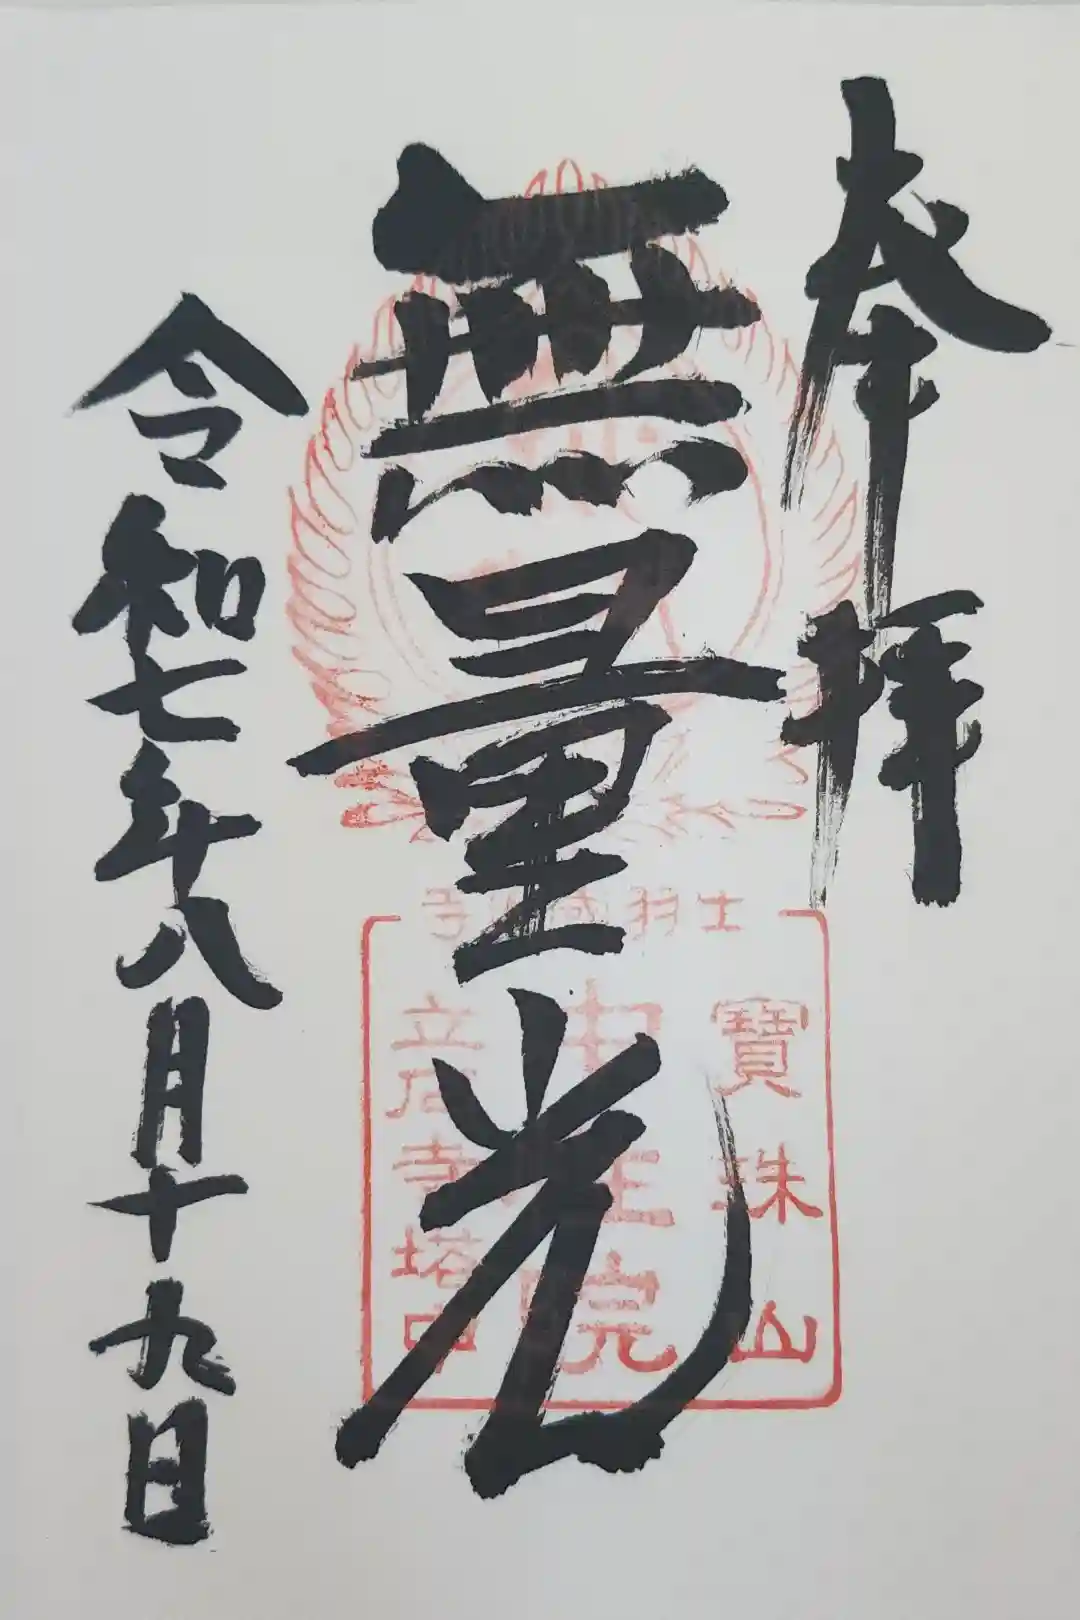 奉拝
無量光
令和七年八月十九日
寶珠山
中性院
立石寺塔中